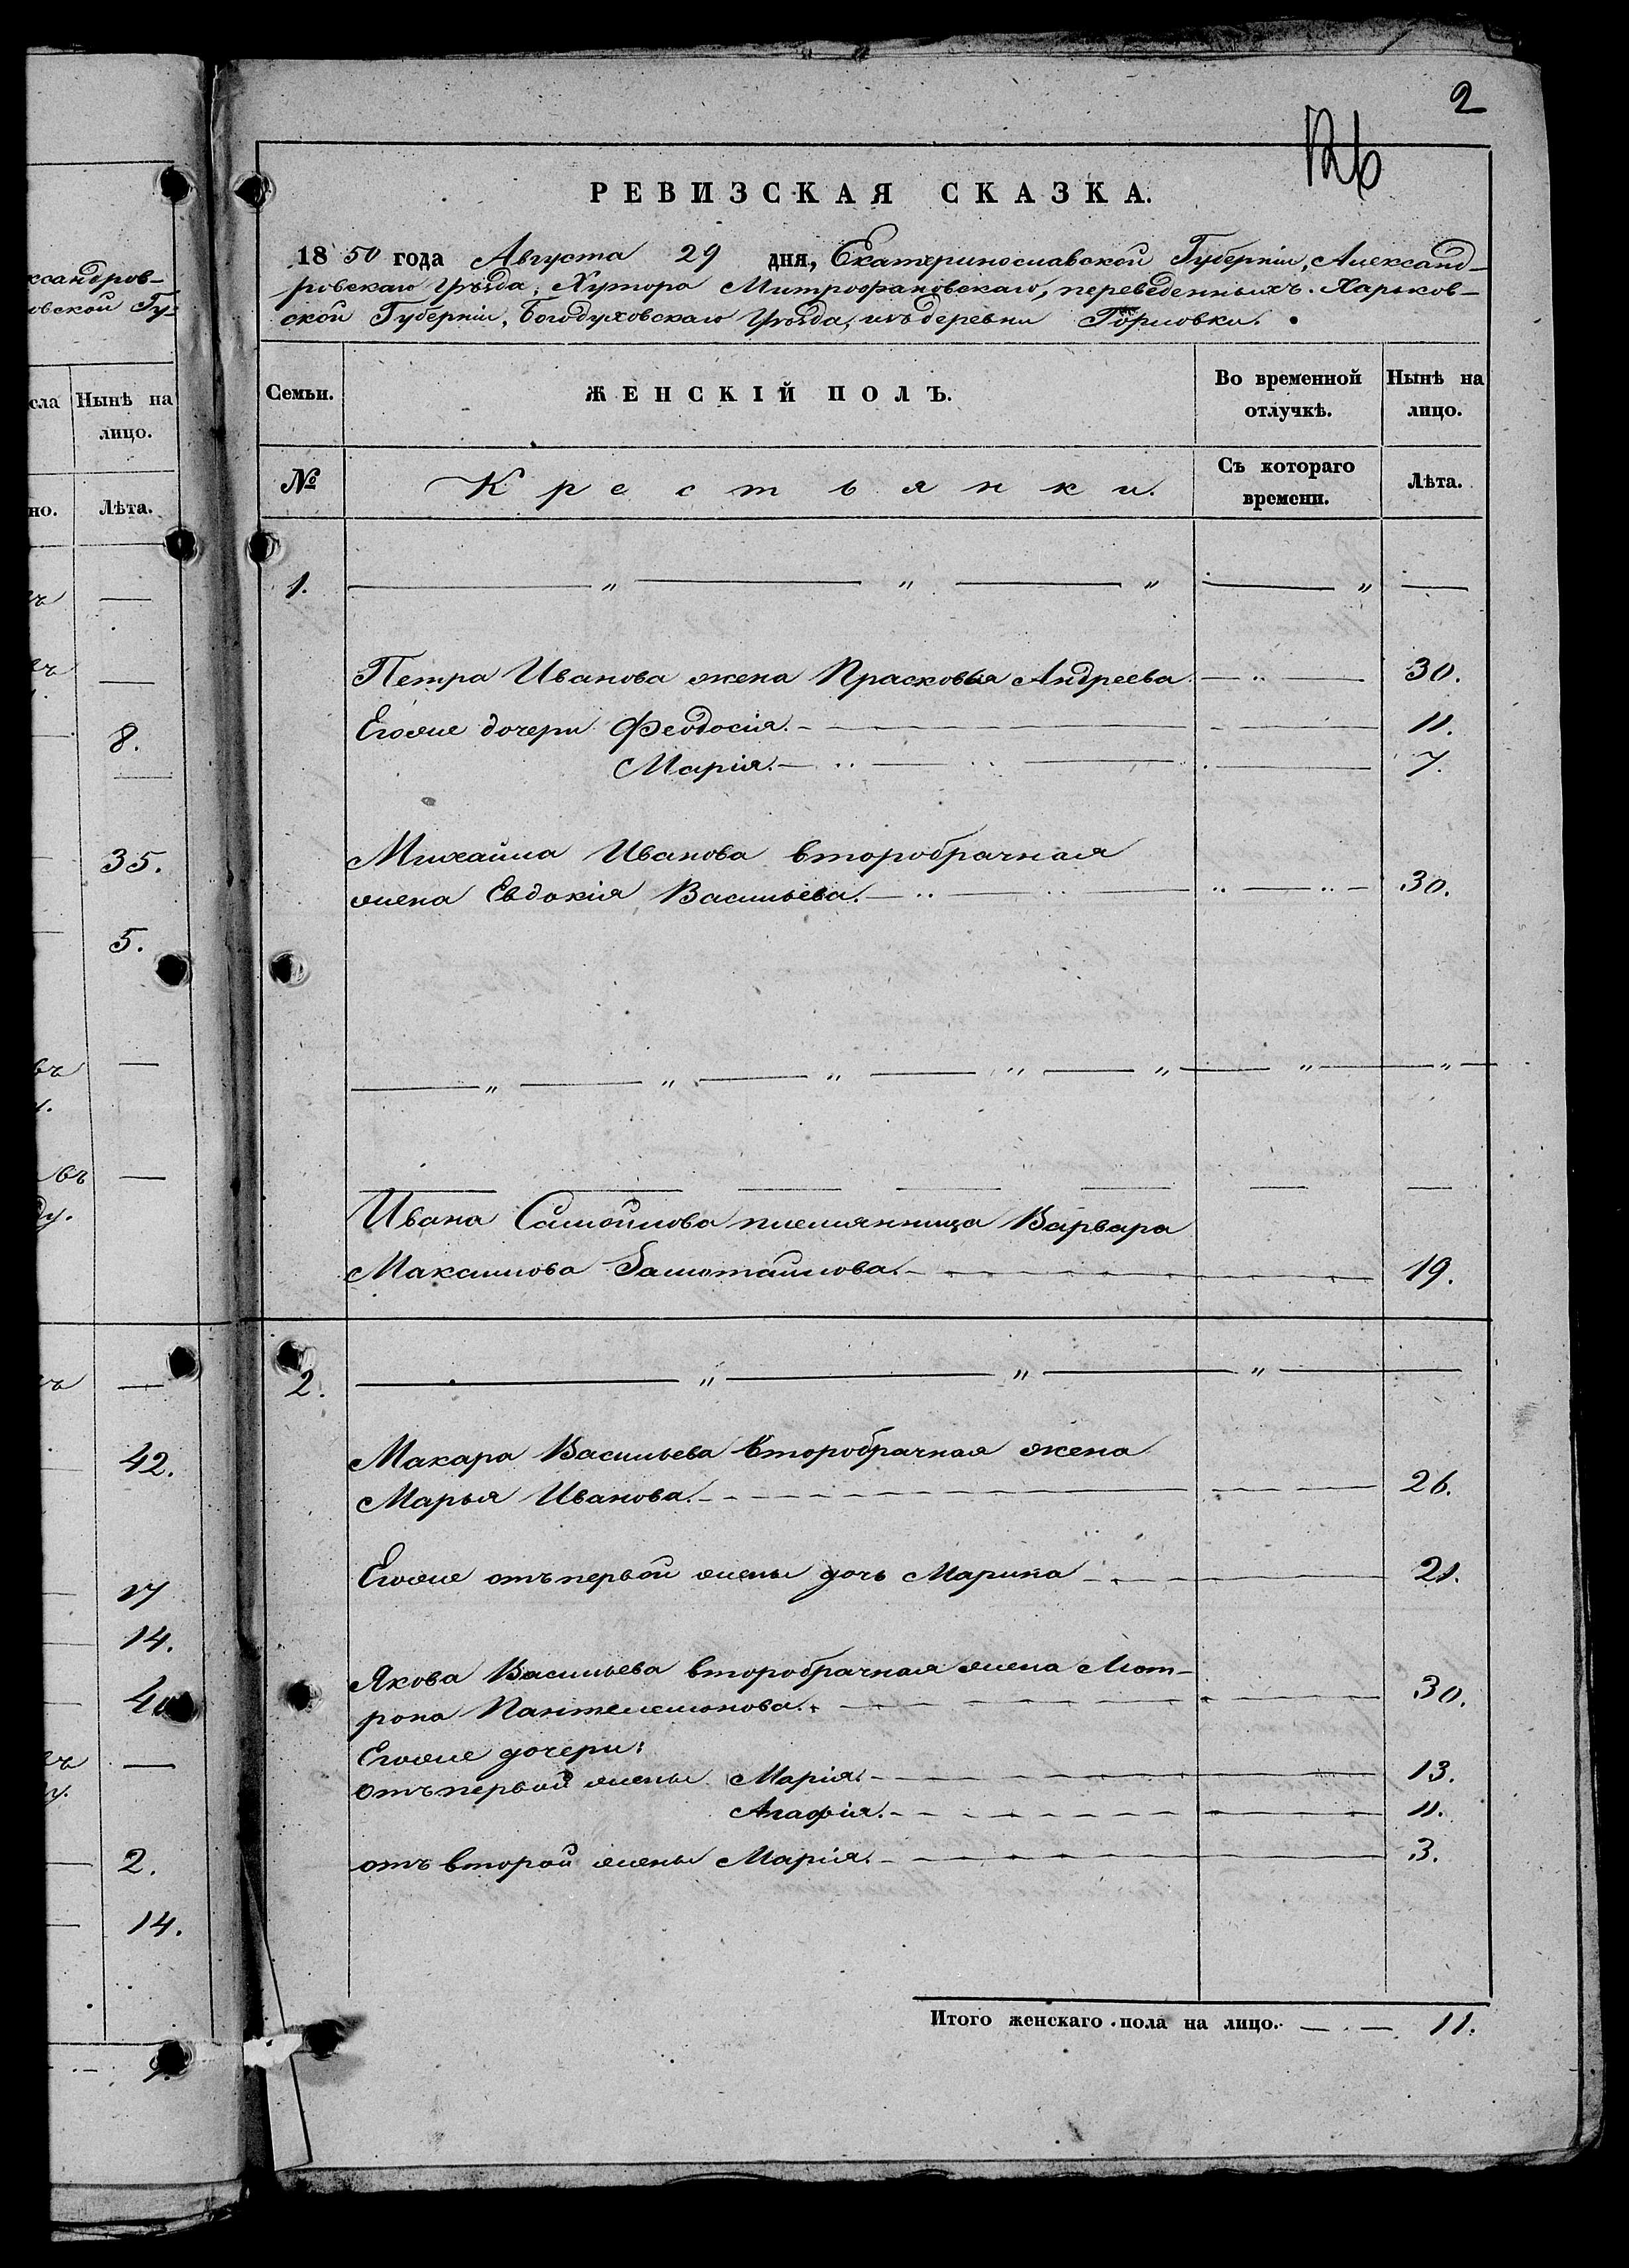 2
РЕВИЗСКАЯ СКАЗКА.
1850 года Августа 29 дня, Екатеринославской Губерніи, Александ-
ровскаго Уѣзда, Хутора Митрофановскаго, переведенныхъ Харьков-
ской Губерніи, Богодуховскаго Уѣзда, изъ деревни
Семьи. ЖЕНСКІЙ ПОЛЪ. Во временной отлучкѣ. Нынѣ на лицо.
№ Крестьянки. Съ котораго времени. Лѣта.
1. — „ — „ — „ — „ —
Петра Иванова жена Прасковья Андреева — „ — 30.
Егоже дочери Феодосія. — 11.
Марія. — 7.
Михайла Иванова второбрачная
жена Евдокія Васильева. — 30.
Ивана Самойлова племянница Варвара
Максимова — 19.
2. — „ — „ — „ —
Макара Васильева второбрачная жена
Марья Иванова. — 26.
Егоже отъ первой жены дочь Марина — 21.
Якова Васильева второбрачная жена Мот-
рона Пантелемонова. — 30.
Егоже дочери:
отъ первой жены Марія. — 13.
Агафія. — 11.
отъ второй жены Марія. — 3.
Итого женскаго пола на лицо. — 11.
ксандров-
овской Гу-
сла Нынѣ на
лицо.
но. Лѣта.
8.
35.
5.
въ
ду.
42.
17
14.
2.
14.